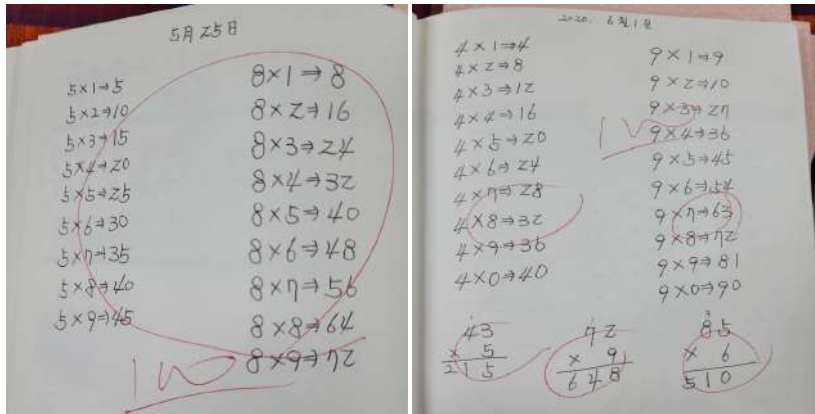 5月25日
5×1⇒5
5×2⇒10
5×3⇒15
5×4⇒20
5×5⇒25
5×6⇒30
5×7⇒35
5×8⇒40
5×9⇒45
8×1⇒8
8×2⇒16
8×3⇒24
8×4⇒32
8×5⇒40
8×6⇒48
8×7⇒56
8×8⇒64
8×9⇒72
100
2020. 6월 1일
4×1⇒4
4×2⇒8
4×3⇒12
4×4⇒16
4×5⇒20
4×6⇒24
4×7⇒28
4×8⇒32
4×9⇒36
4×0⇒40
9×1⇒9
9×2⇒10
9×3⇒27
9×4⇒36
9×5⇒45
9×6⇒54
9×7⇒63
9×8⇒72
9×9⇒81
9×0⇒90
100
43
× 5
215
72
× 9
648
85
× 6
510